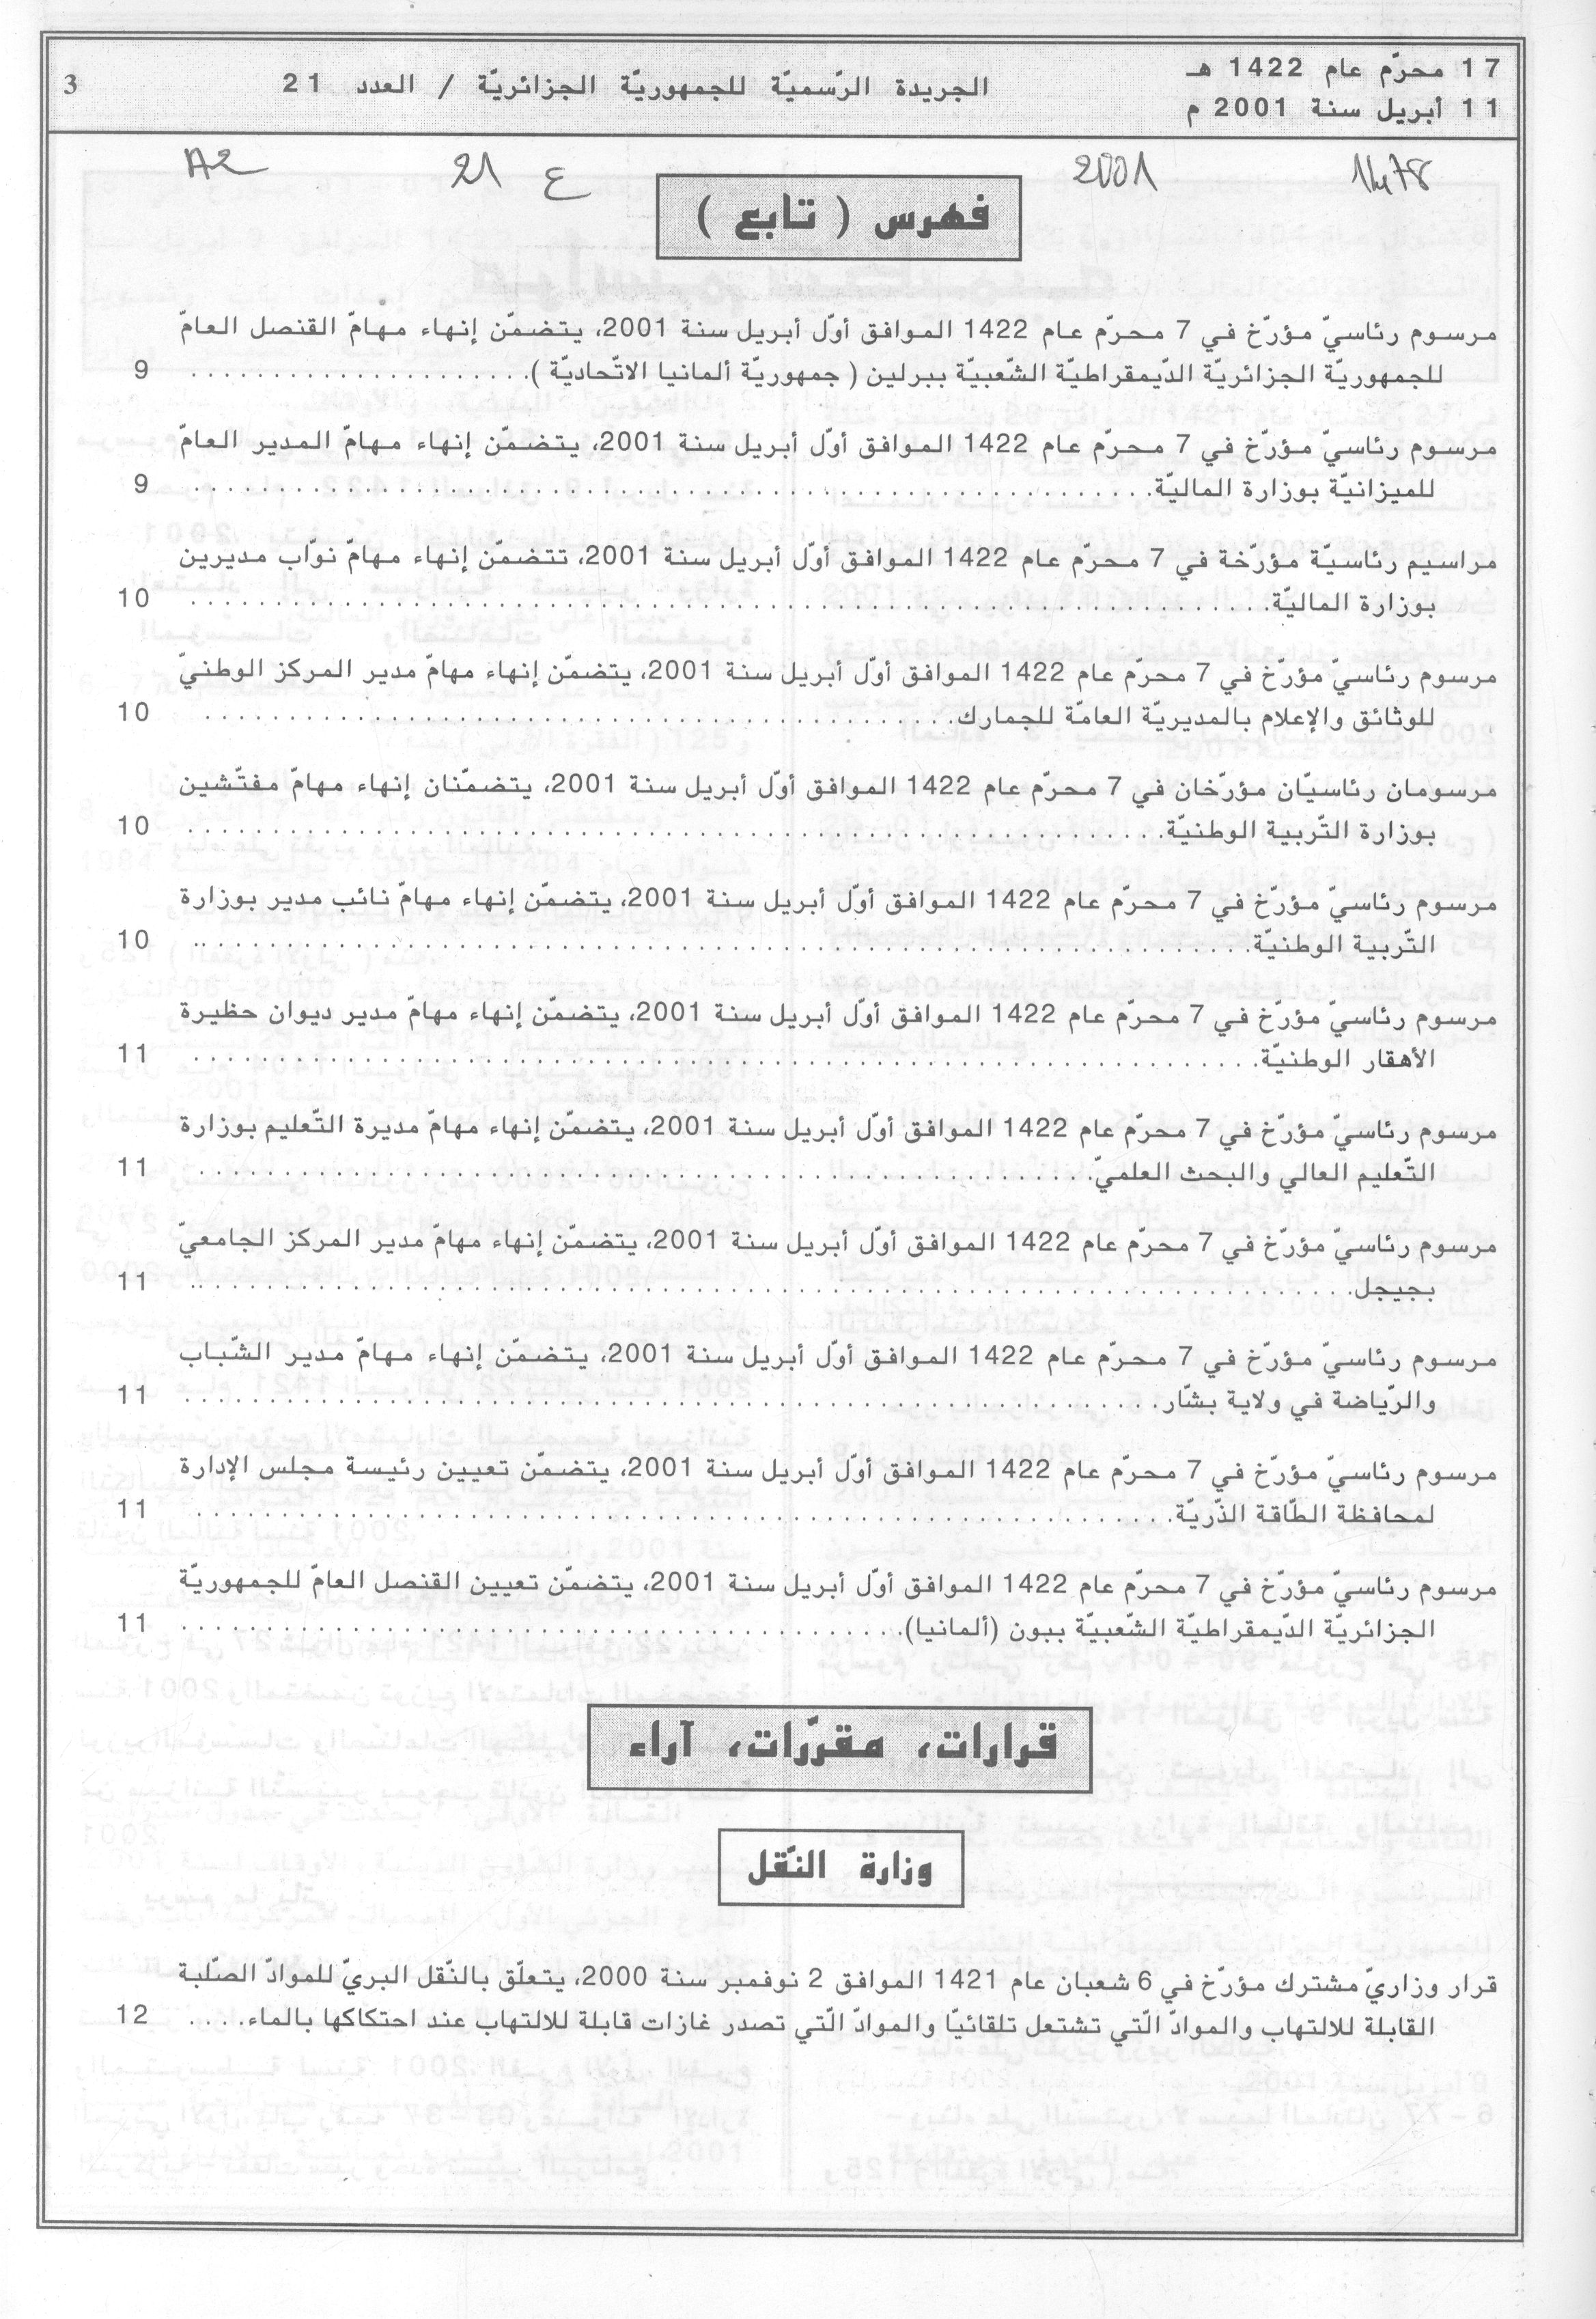 17 محرّم عام 1422 هـ
11 أبريل سنة 2001 م
الجريدة الرّسميّة للجمهوريّة الجزائريّة / العدد 21
3
1478 2001 ع 21 A2
فهرس ( تابع )
مرسوم رئاسيّ مؤرّخ في 7 محرّم عام 1422 الموافق أوّل أبريل سنة 2001، يتضمّن إنهاء مهامّ القنصل العامّ
للجمهوريّة الجزائريّة الدّيمقراطيّة الشّعبيّة ببرلين ( جمهوريّة ألمانيا الاتّحاديّة ). . . . . . . . . . . . . . . . . . . . 9
مرسوم رئاسيّ مؤرّخ في 7 محرّم عام 1422 الموافق أوّل أبريل سنة 2001، يتضمّن إنهاء مهامّ المدير العامّ
للميزانيّة بوزارة الماليّة. . . . . . . . . . . . . . . . . . . . 9
مراسيم رئاسيّة مؤرّخة في 7 محرّم عام 1422 الموافق أوّل أبريل سنة 2001، تتضمّن إنهاء مهامّ نوّاب مديرين
بوزارة الماليّة. . . . . . . . . . . . . . . . . . . . 10
مرسوم رئاسيّ مؤرّخ في 7 محرّم عام 1422 الموافق أوّل أبريل سنة 2001، يتضمّن إنهاء مهامّ مدير المركز الوطنيّ
للوثائق والإعلام بالمديريّة العامّة للجمارك. . . . . . . . . . . . . . . . . . . . 10
مرسومان رئاسيّان مؤرّخان في 7 محرّم عام 1422 الموافق أوّل أبريل سنة 2001، يتضمّنان إنهاء مهامّ مفتّشين
بوزارة التّربية الوطنيّة. . . . . . . . . . . . . . . . . . . . 10
مرسوم رئاسيّ مؤرّخ في 7 محرّم عام 1422 الموافق أوّل أبريل سنة 2001، يتضمّن إنهاء مهامّ نائب مدير بوزارة
التّربية الوطنيّة. . . . . . . . . . . . . . . . . . . . 10
مرسوم رئاسيّ مؤرّخ في 7 محرّم عام 1422 الموافق أوّل أبريل سنة 2001، يتضمّن إنهاء مهامّ مدير ديوان حظيرة
الأهقار الوطنيّة. . . . . . . . . . . . . . . . . . . . 11
مرسوم رئاسيّ مؤرّخ في 7 محرّم عام 1422 الموافق أوّل أبريل سنة 2001، يتضمّن إنهاء مهامّ مديرة التّعليم بوزارة
التّعليم العالي والبحث العلميّ. . . . . . . . . . . . . . . . . . . . 11
مرسوم رئاسيّ مؤرّخ في 7 محرّم عام 1422 الموافق أوّل أبريل سنة 2001، يتضمّن إنهاء مهامّ مدير المركز الجامعيّ
بجيجل. . . . . . . . . . . . . . . . . . . . 11
مرسوم رئاسيّ مؤرّخ في 7 محرّم عام 1422 الموافق أوّل أبريل سنة 2001، يتضمّن إنهاء مهامّ مدير الشّباب
والرّياضة في ولاية بشّار. . . . . . . . . . . . . . . . . . . . 11
مرسوم رئاسيّ مؤرّخ في 7 محرّم عام 1422 الموافق أوّل أبريل سنة 2001، يتضمّن تعيين رئيسة مجلس الإدارة
لمحافظة الطّاقة الذّريّة. . . . . . . . . . . . . . . . . . . . 11
مرسوم رئاسيّ مؤرّخ في 7 محرّم عام 1422 الموافق أوّل أبريل سنة 2001، يتضمّن تعيين القنصل العامّ للجمهوريّة
الجزائريّة الدّيمقراطيّة الشّعبيّة ببون (ألمانيا). . . . . . . . . . . . . . . . . . . . 11
قرارات، مقرّرات، آراء
وزارة النّقل
قرار وزاريّ مشترك مؤرّخ في 6 شعبان عام 1421 الموافق 2 نوفمبر سنة 2000، يتعلّق بالنّقل البريّ للموادّ الصّلبة
القابلة للالتهاب والموادّ الّتي تشتعل تلقائيّا والموادّ الّتي تصدر غازات قابلة للالتهاب عند احتكاكها بالماء. . . . 12